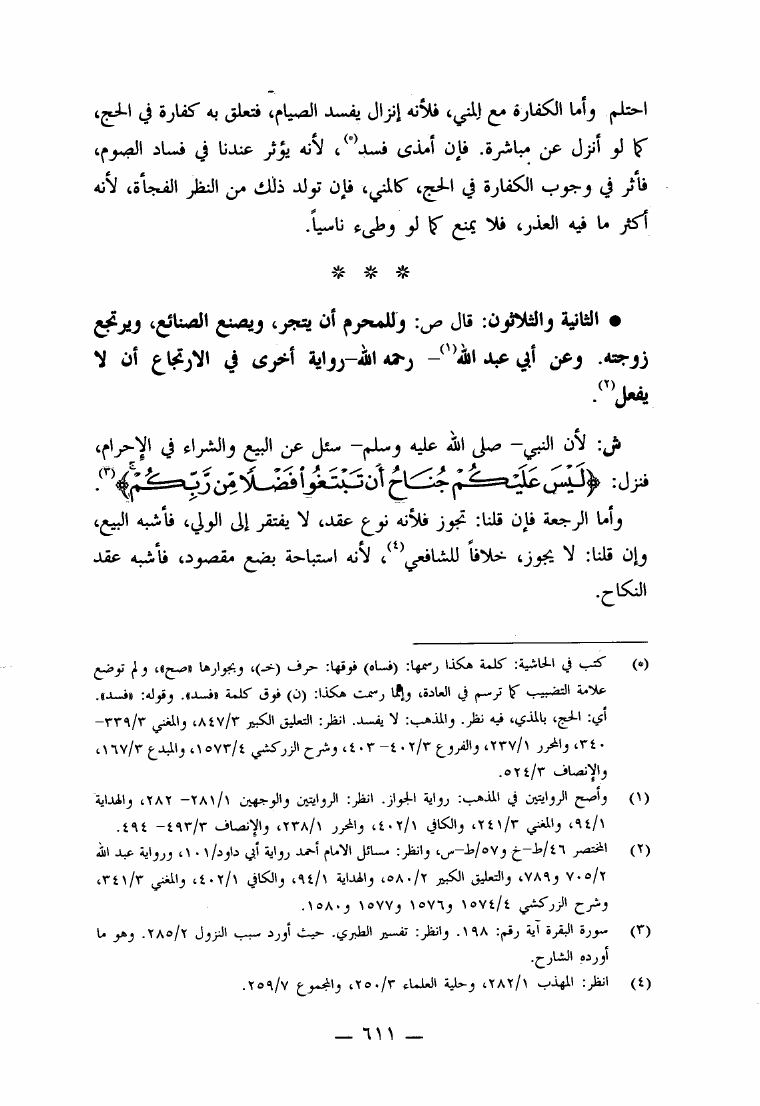 احتلم وأما الكفارة مع المني، فلأنه إنزال يفسد الصيام، فتعلق به كفارة في الحج،
كما لو أنزل عن مباشرة. فإن أمذى فسد(*)، لأنه يؤثر عندنا في فساد الصوم،
فأثر في وجوب الكفارة في الحج، كالمني، فإن تولد ذلك من النظر الفجأة، لأنه
أكثر ما فيه العذر، فلا يمنع كما لو وطىء ناسياً.
* * *
• الثانية والثلاثون: قال ص: وللمحرم أن يتجر، ويصنع الصنائع، ويرتجع
زوجته. وعن أبي عبد الله(١)– رحمه الله–رواية أخرى في الارتجاع أن لا
يفعل(٢).
ش: لأن النبي– صلى الله عليه وسلم– سئل عن البيع والشراء في الإحرام،
فنزل: ﴿لَيْسَ عَلَيْكُمْ جُنَاحٌ أَن تَبْتَغُواْ فَضْلًا مِّن رَّبِّكُمْ﴾(٣).
وأما الرجعة فإن قلنا: تجوز فلأنه نوع عقد، لا يفتقر إلى الولي، فأشبه البيع،
وإن قلنا: لا يجوز، خلافاً للشافعي(٤)، لأنه استباحة بضع مقصود، فأشبه عقد
النكاح.
(*) كتب في الحاشية: كلمة هكذا رسمها: (فساه) فوقها: حرف (خـ)، وبجوارها «صح»، ولم توضع
علامة التضبيب كما ترسم في العادة، وإنما رسمت هكذا: (ن) فوق كلمة «فسد». وقوله: «فسد».
أي: الحج، بالمذي، فيه نظر. والمذهب: لا يفسد. انظر: التعليق الكبير ٨٤٧/٣، والمغني ٣٣٩/٣–
٣٤٠، والمحرر ٢٣٧/١، والفروع ٤٠٢/٣– ٤٠٣، وشرح الزركشي ١٥٧٣/٤، والمبدع ١٦٧/٣،
والإنصاف ٥٢٤/٣.
(١) وأصح الروايتين في المذهب: رواية الجواز. انظر: الروايتين والوجهين ٢٨١/١– ٢٨٢، والهداية
٩٤/١، والمغني ٢٤١/٣، والكافي ٤٠٢/١، والمحرر ٢٣٨/١، والإنصاف ٤٩٣/٣– ٤٩٤.
(٢) المختصر ٤٦/ط–خ و٥٧/ط–س، وانظر: مسائل الامام أحمد رواية أبي داود/١٠١، ورواية عبد الله
٧٠٥/٢ و٧٨٩، والتعليق الكبير ٥٨٠/٢، والهداية ٩٤/١، والكافي ٤٠٢/١، والمغني ٣٤١/٣،
وشرح الزركشي ١٥٧٤/٤ و١٥٧٦ و١٥٧٧ و١٥٨٠.
(٣) سورة البقرة آية رقم: ١٩٨. وانظر: تفسير الطبري. حيث أورد سبب النزول ٢٨٥/٢. وهو ما
أورده الشارح.
(٤) انظر: المهذب ٢٨٢/١، وحلية العلماء ٢٥٠/٣، والمجموع ٢٥٩/٧.
— ٦١١ —